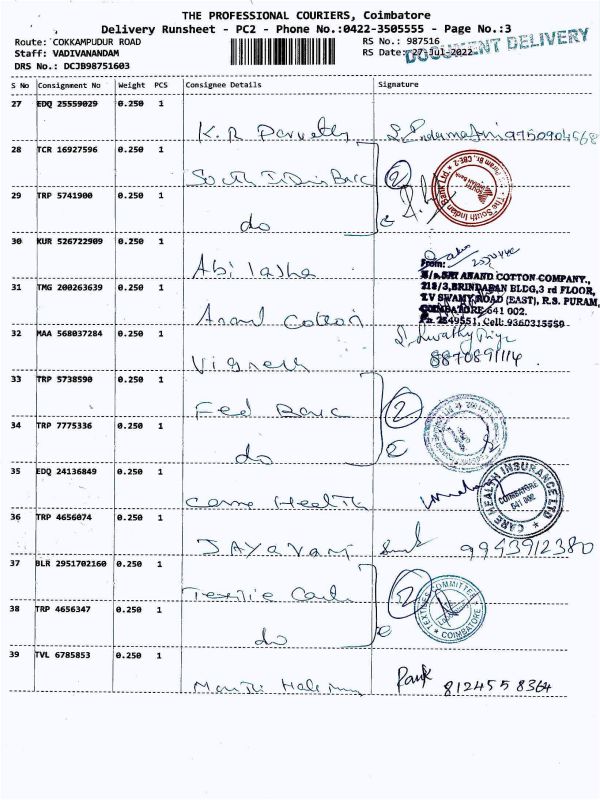 THE PROFESSIONAL COURIERS, Coimbatore
Delivery Runsheet - PC2 - Phone No.:0422-3505555 - Page No.:3
Route: COKKAMPUDUR ROAD RS No.: 987516
Staff: VADIVANANDAM RS Date: 27-Jul-2022
DOCUMENT DELIVERY
DRS No.: DCJB98751603
S No Consignment No Weight PCS Consignee Details Signature
27 EDQ 25559029 0.250 1
K.R Parvathy 9750904568
28 TCR 16927596 0.250 1
South Indian Banc 2
The South Indian Bank Ltd.
29 TRP 5741900 0.250 1
do
30 KUR 526722909 0.250 1
Abilasha
From:
M/s.SRI ANAND COTTON COMPANY.,
218/3,BRINDABAN BLDG,3 rd FLOOR,
T.V SWAMY ROAD (EAST), R.S. PURAM,
COIMBATORE-641 002.
Ph 2549551, Cell: 9360315550
31 TMG 200263639 0.250 1
Anand Cotton
32 MAA 568037284 0.250 1
Vignesh 8870891114
33 TRP 5738590 0.250 1
Fed Banc 2
34 TRP 7775336 0.250 1
do
35 EDQ 24136849 0.250 1
Care Health
CARE HEALTH INSURANCE LTD
COIMBATORE
641 002
36 TRP 4656074 0.250 1
9943912380
37 BLR 2951702160 0.250 1
2
TEXTILES COMMITTEE
COIMBATORE
38 TRP 4656347 0.250 1
do
39 TVL 6785853 0.250 1
8124558364